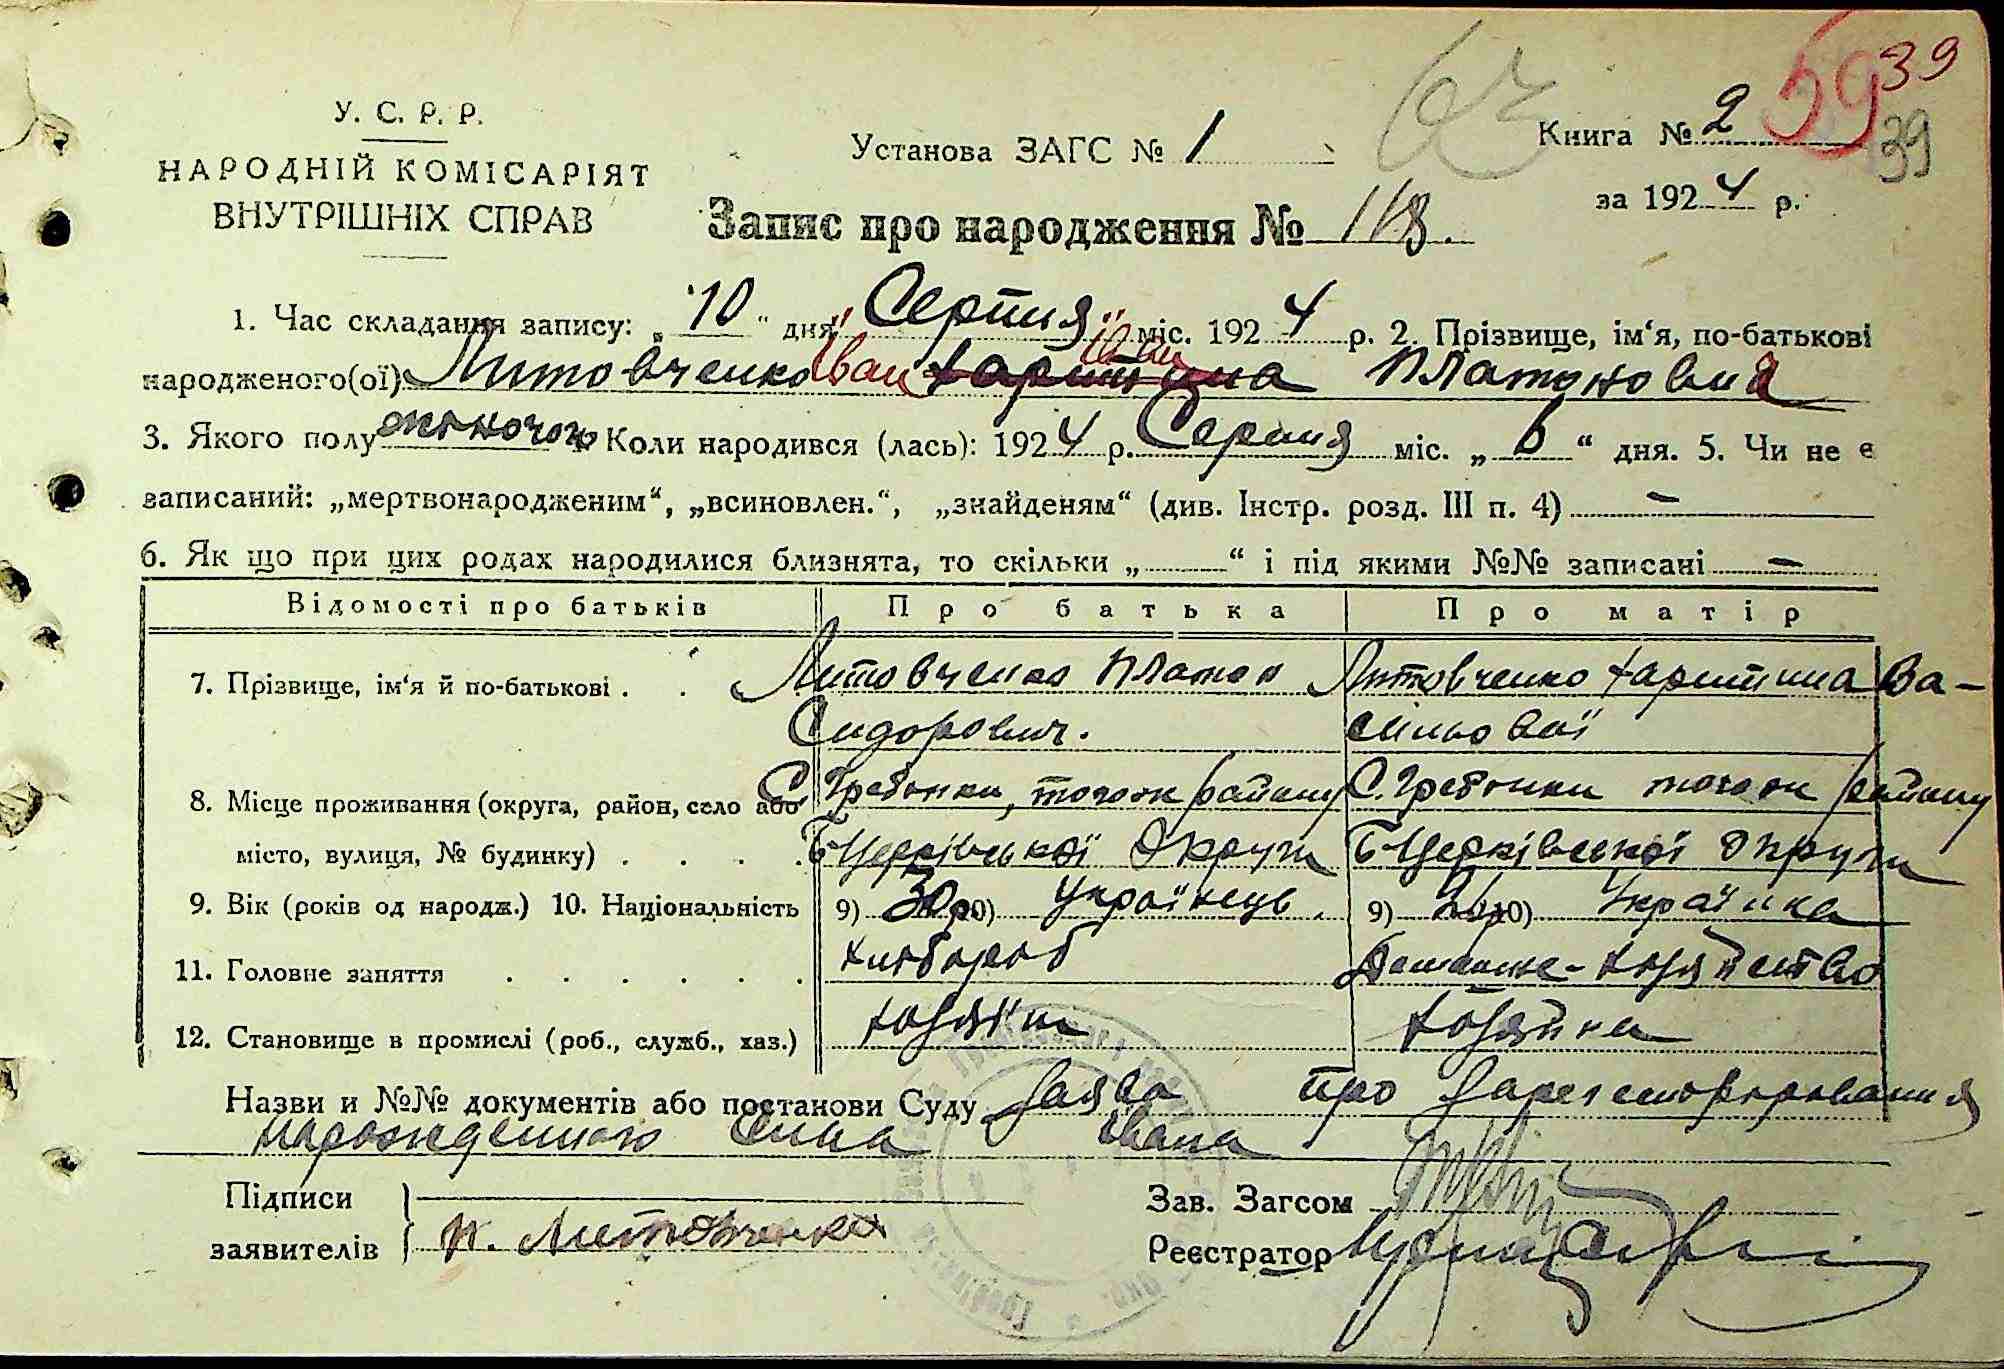 59 39
63
39
У. С. Р. Р.
НАРОДНІЙ КОМІСАРІЯТ
ВНУТРІШНІХ СПРАВ
Установа ЗАГС № 1
Книга № 2
за 1924 р.
Запис про народження № 118.
1. Час складання запису: „10“ дня „Серпня“ міс. 1924 р. 2. Прізвище, ім‘я, по-батькові
народженого(ої): Литовченко Іван Харитина Платоновича
3. Якого полу жіночою 4. Коли народився (лась): 1924 р. Серпня міс. „6“ дня. 5. Чи не є
записаний: „мертвонародженим“, „всиновлен.“, „знайденям“ (див. Інстр. розд. III п. 4) —
6. Як що при цих родах народилися близнята, то скільки „ “ і під якими №№ записані —
Відомості про батьків Про батька Про матір
7. Прізвище, ім‘я й по-батькові . . Литовченко Платон Литовченко Харитина Ва-
Сидорович. сильової
8. Місце проживання (округа, район, село або С. Гребінки, тогож району С. Гребінки тогож району
місто, вулиця, № будинку) . . . . Б Церківської Округи Б Церківської Округи
9. Вік (років од народж.) 10. Національність 9) 30 р 10) Українець. 9) 10) Українка
11. Головне заняття . . . . . . Хлібороб Домашнє-хозяйство
12. Становище в промислі (роб., служб., хаз.) хозяїн хозяйка
Назви и №№ документів або постанови Суду Заява про
сина Івана
Підписи
заявителів П. Литовченко
Зав. Загсом
Реєстратор